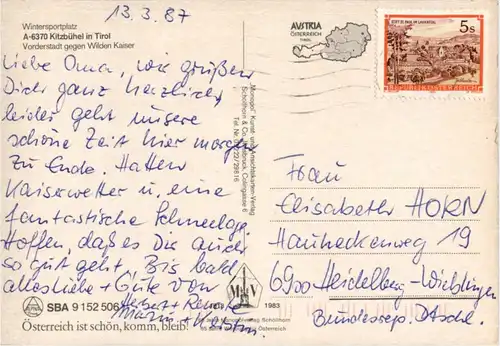 13.3.87
Wintersportplatz
A-6370 Kitzbühel in Tirol
Vorderstadt gegen Wilden Kaiser
Liebe Oma, wir grüßen
Dich ganz herzlich,
leider geht unsere
schöne Zeit hier morgen
zu Ende. Hatten
Kaiserwetter u. eine
fantastische Schneelage.
Hoffen, daß es Dir auch
so gut geht, Bis bald
alles liebe + Gute von
Herbert + Renate
Mario + Kerstin
SBA 9 152 506
Österreich ist schön, komm, bleib!
AUSTRIA
ÖSTERREICH
TIROL
5s
REPUBLIK ÖSTERREICH
"Monopol" Kunst- und Ansichtskarten-Verlag
Schöllhorn & Co., Innsbruck, Colingasse 6
1983
Frau
Elisabeth HORN
Hauheckenweg 19
6900 Heidelberg-Wieblingen
Bundesrep. Dtschl.